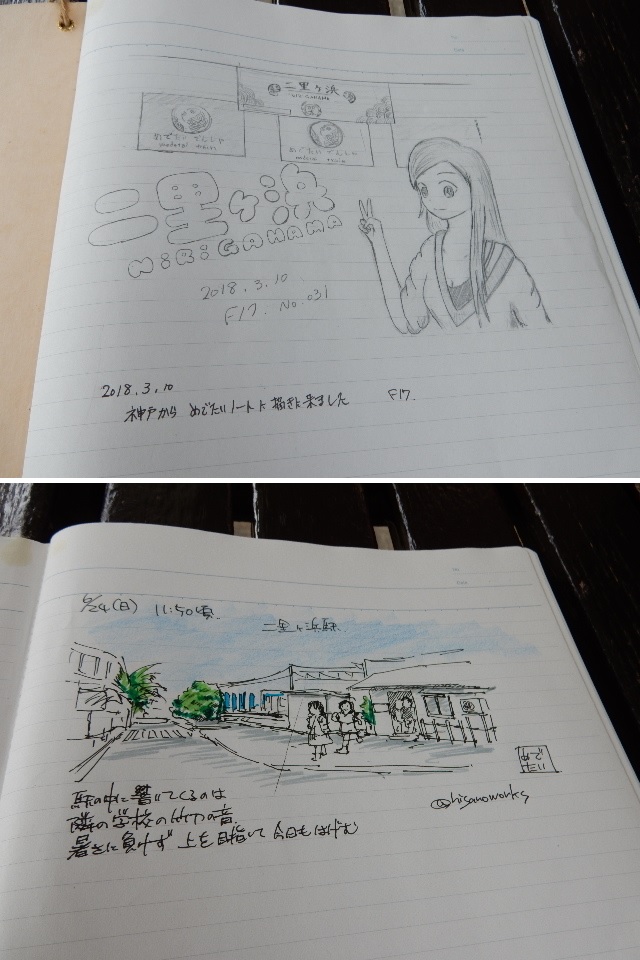 二里ヶ浜
NIRIGAHAMA
めでたいでんしゃ
medetai train
めでたいでんしゃ
medetai train
二里ヶ浜
NiRiGAHAMA
2018.3.10
F17. No.031
2018.3.10
神戸から めでたいノートに描きに来ました F17.
6/24(日) 11:50頃.
二里ヶ浜駅.
めで
たい
@hisanoworks
駅の中に響いてくるのは
隣の学校の竹刀の音.
暑さに負けず 上を目指して 今日もはげむ